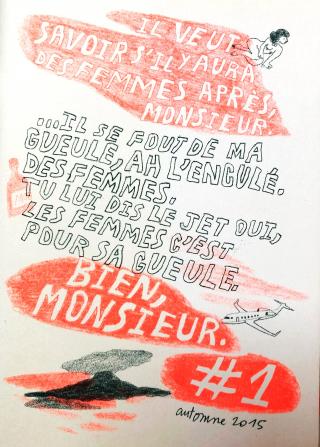 IL VEUT
SAVOIR S'IL Y AURA
DES FEMMES APRÈS,
MONSIEUR
...IL SE FOUT DE MA
GUEULE, AH L'ENCULÉ.
DES FEMMES.
TU LUI DIS LE JET OUI,
LES FEMMES C'EST
POUR SA GUEULE.
BIEN,
MONSIEUR.
#1
automne 2015